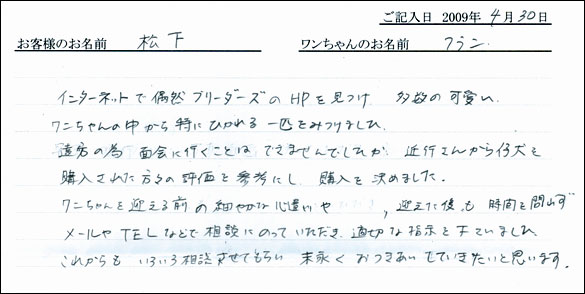 ご記入日 2009年 4月30日
お客様のお名前 松下 ワンちゃんのお名前 フラン
インターネットで偶然ブリーダーズのHPを見つけ 多数の可愛い
ワンちゃんの中から特にひかれる一匹をみつけました
遠方の為 面会に行くことはできませんでしたが 近行さんから仔犬を
購入された方々の評価を参考にし 購入を決めました。
ワンちゃんを迎える前の細やかな心遣いや , 迎えた後も 時間を問わず
メールやTELなどで相談にのっていただき 適切な指示を下さいました
これからも いろいろ相談させてもらい 末永く おつきあいしていきたいと思います。